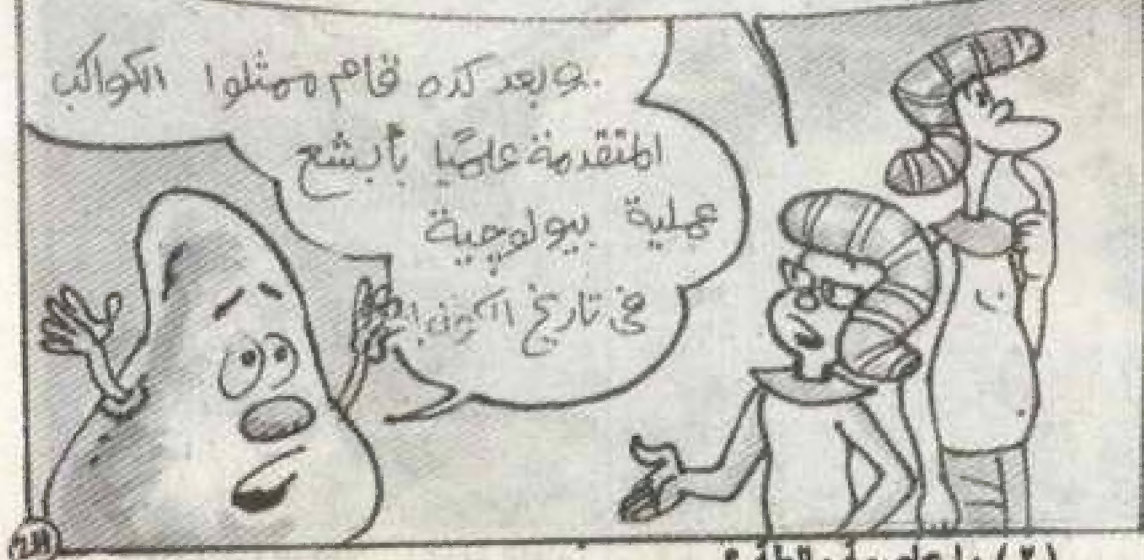 ..وبعد كده قام ممثلوا الكواكب
المتقدمة علميًا بأبشع
عملية بيولوجية
فى تاريخ الكون